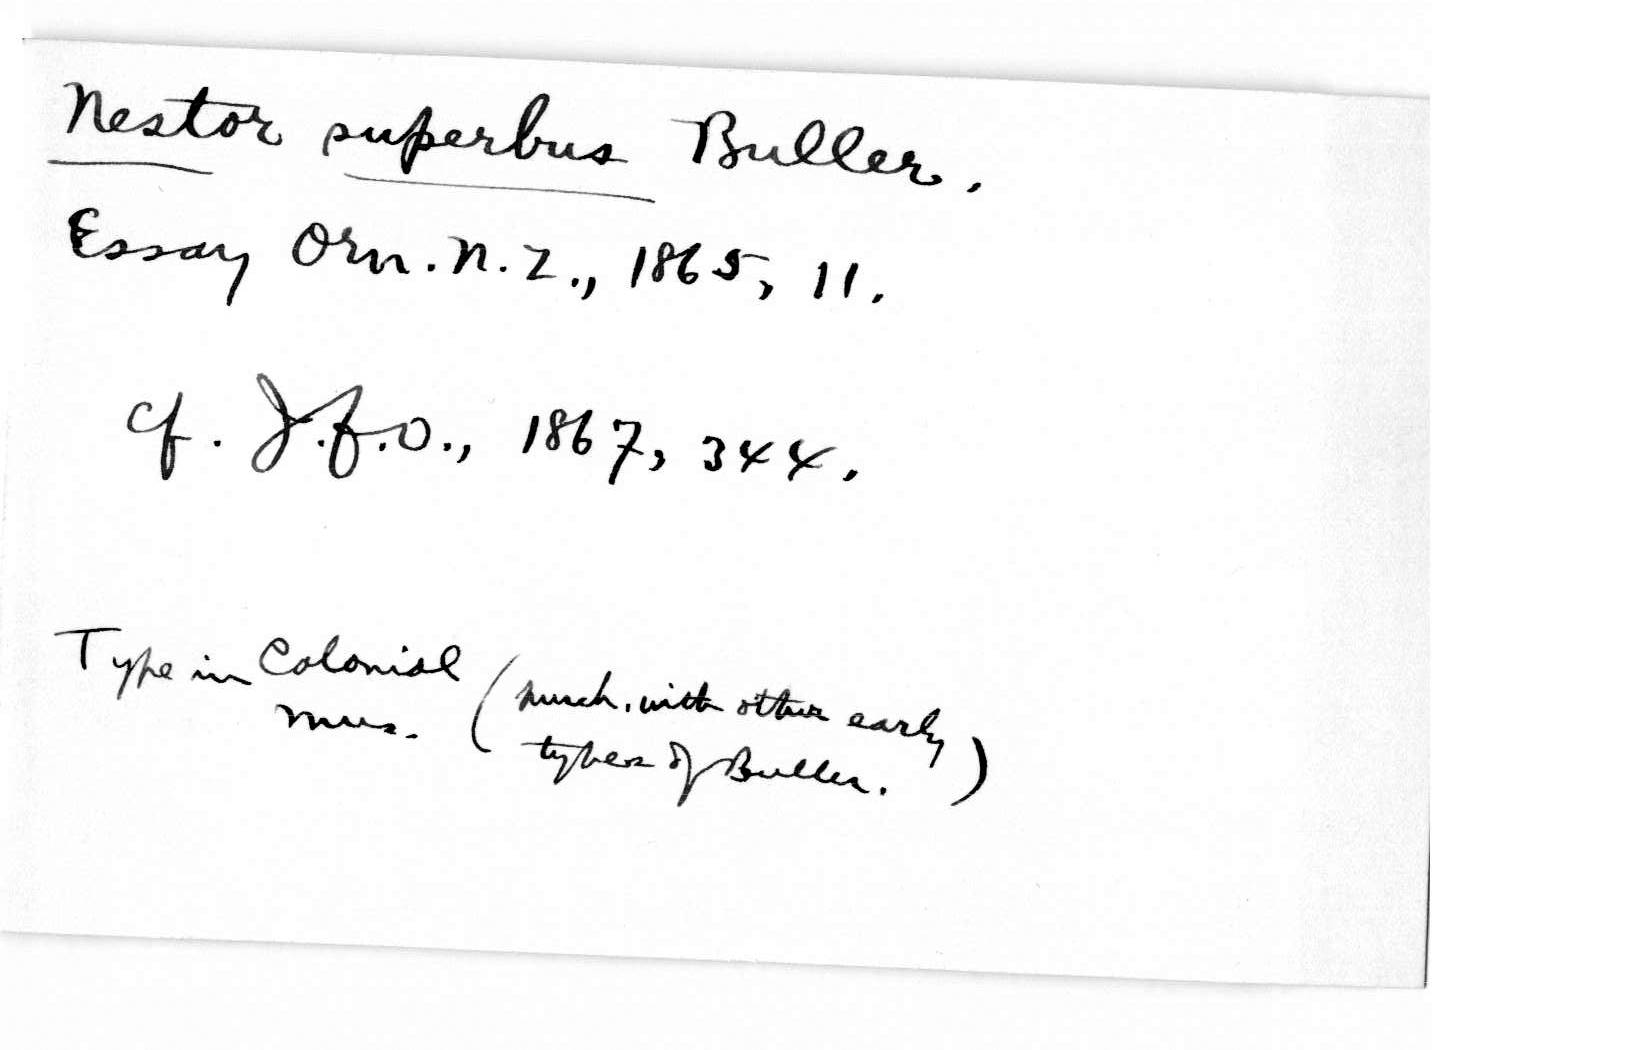 Nestor superbus Buller.
Essay Orn. N. Z., 1865, 11.
cf. J.f.O., 1867, 344.
Type in Colonial
Mus.
(purch. with other early
types of Buller.)